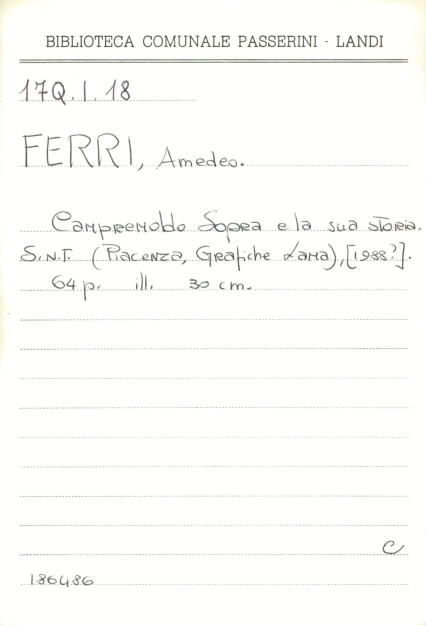 BIBLIOTECA COMUNALE PASSERINI - LANDI
17Q.I.18
FERRI, Amedeo.
Campremoldo Sopra e la sua storia.
S.N.T. (Piacenza, Grafiche Lama), [1988?].
64 p. ill. 30 cm.
C
186486